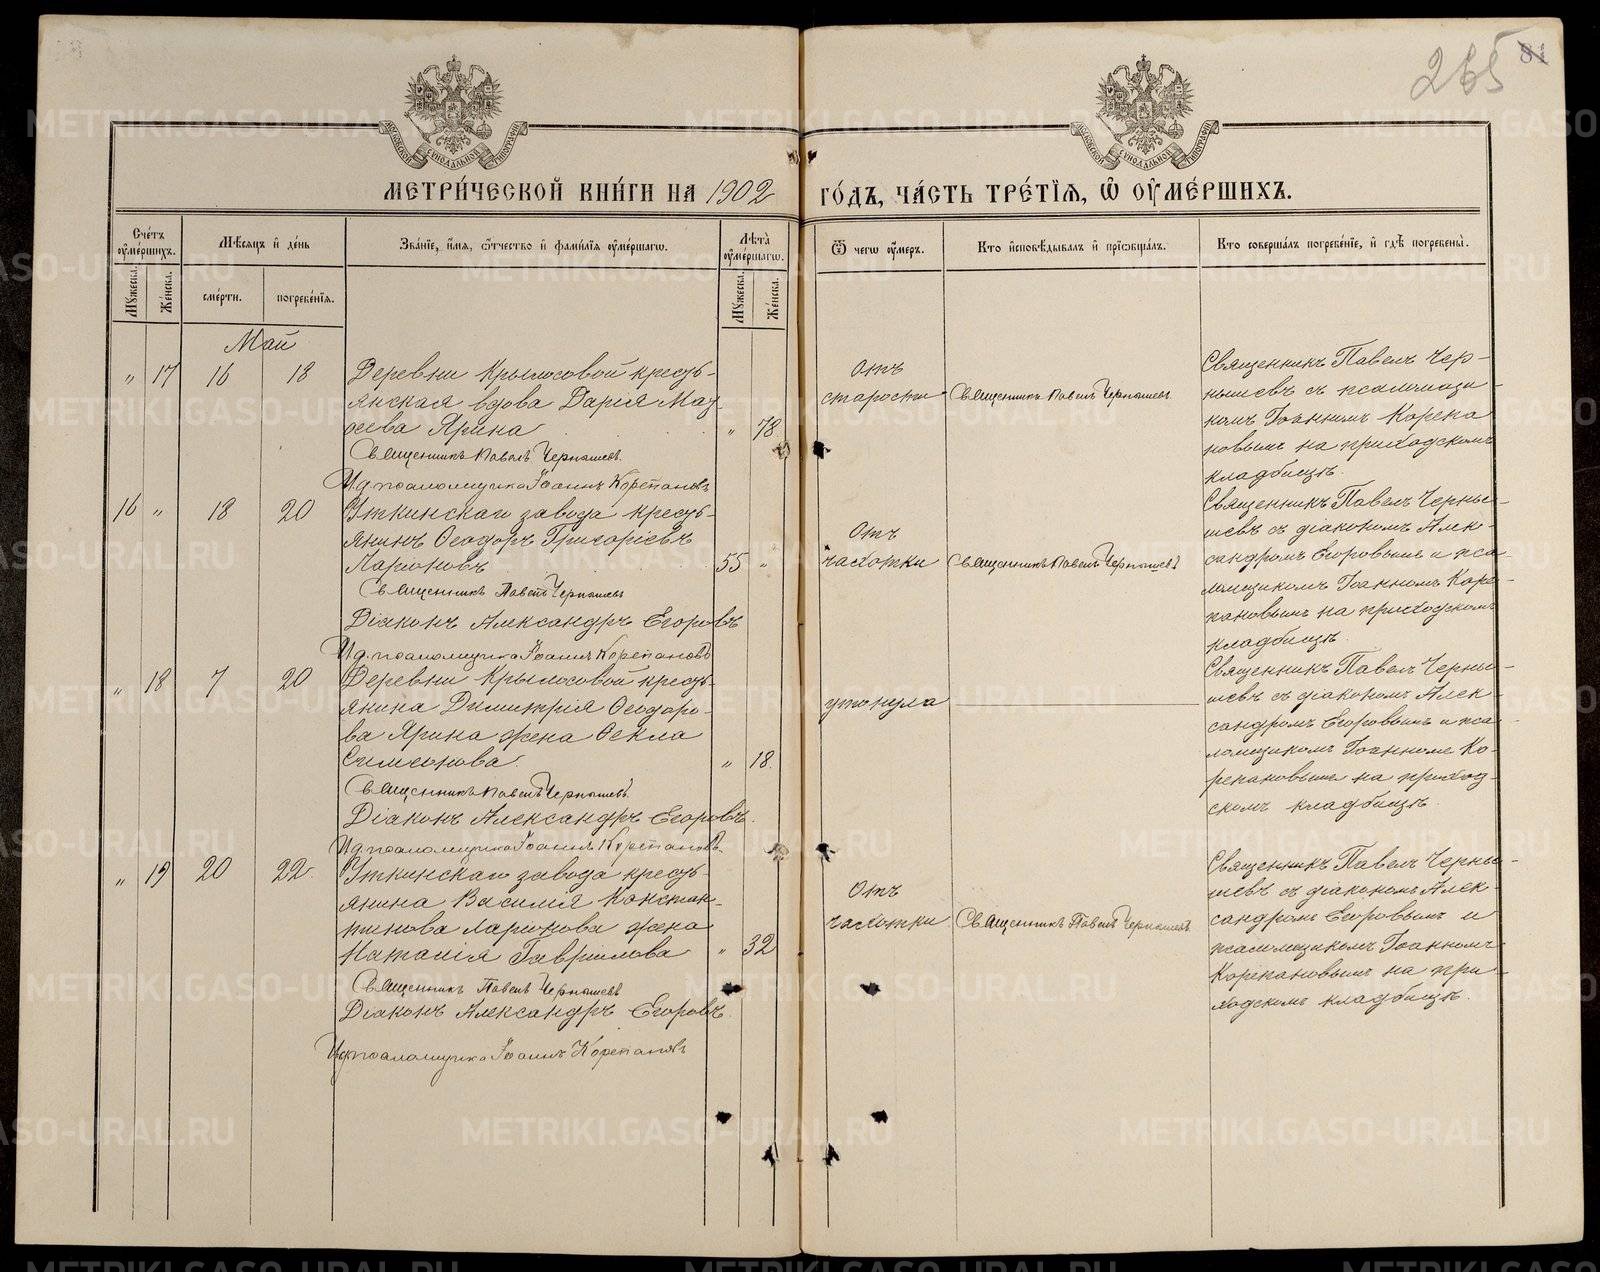 265
81
МЕТРИ́ЧЕСКОЙ КНИ́ГИ НА 1902 ГО́ДЪ, ЧА́СТЬ ТРЕ́ТЇѦ, Ѡ҆ ОУ҆МЕ́РШИХЪ.
Сче́тъ оу҆ме́ршихъ.
Мꙋжеска.
Же́нска.
Мѣ́сѧцъ и҆ де́нь
сме́рти.
погребе́нїѧ.
Зва́нїе, и҆́мѧ, ѻ҆́тчество и҆ фами́лїѧ оу҆ме́ршагѡ.
Лѣ́та оу҆ме́ршагѡ.
Мꙋжеска.
Же́нска.
Ѿ чегѡ̀ оу҆́меръ.
Кто̀ и҆сповѣ́дывалъ и҆ прїѡбща́лъ.
Кто̀ соверша́лъ погребе́нїе, и҆ гдѣ̀ погребены̀.
Май
" 17 16 18
Деревни Крылосовой кресть-
янская вдова Дарія Мат-
ѳеева Ярина " 78
Священникъ Павелъ Чернышевъ
И.д. псаломщика Іоаннъ Корепановъ
Отъ
старости
Священникъ Павелъ Чернышевъ
Священникъ Павелъ Чер-
нышевъ съ псаломщи-
комъ Іоанномъ Корепа
новымъ на приходскомъ
кладбищѣ.
16 " 18 20
Уткинскаго завода кресть-
янинъ Ѳеодоръ Григоріевъ
Ларіоновъ 55 "
Священникъ Павелъ Чернышевъ
Діаконъ Александръ Егоровъ
И.д. псаломщика Іоаннъ Корепановъ
Отъ
чахотки
Священникъ Павелъ Чернышевъ
Священникъ Павелъ Черны-
шевъ съ діакономъ Алек-
сандромъ Егоровымъ и пса-
ломщикомъ Іоанномъ Коре-
пановымъ на приходскомъ
кладбищѣ.
" 18 7 20
Деревни Крылосовой кресть-
янина Димитрія Ѳеодоро-
ва Ярина жена Ѳекла
Симеонова " 18
Священникъ Павелъ Чернышевъ.
Діаконъ Александръ Егоровъ.
И.д. псаломщика Іоаннъ Корепановъ.
утонула
Священникъ Павелъ Черны-
шевъ съ діакономъ Алек-
сандромъ Егоровымъ и пса-
ломщикомъ Іоанномъ Ко-
репановымъ на приход-
скомъ кладбищѣ.
" 19 20 22
Уткинскаго завода кресть-
янина Василія Констан-
тинова Ларіонова жена
Наталія Гавріилова " 32
Священникъ Павелъ Чернышевъ
Діаконъ Александръ Егоровъ.
И.д. псаломщика Іоаннъ Корепановъ
Отъ
чахотки
Священникъ Павелъ Чернышевъ
Священникъ Павелъ Черны-
шевъ съ діакономъ Алек-
сандромъ Егоровымъ и
псаломщикомъ Іоанномъ
Корепановымъ на при-
ходскомъ кладбищѣ.
METRIKI.GASO-URAL.RU